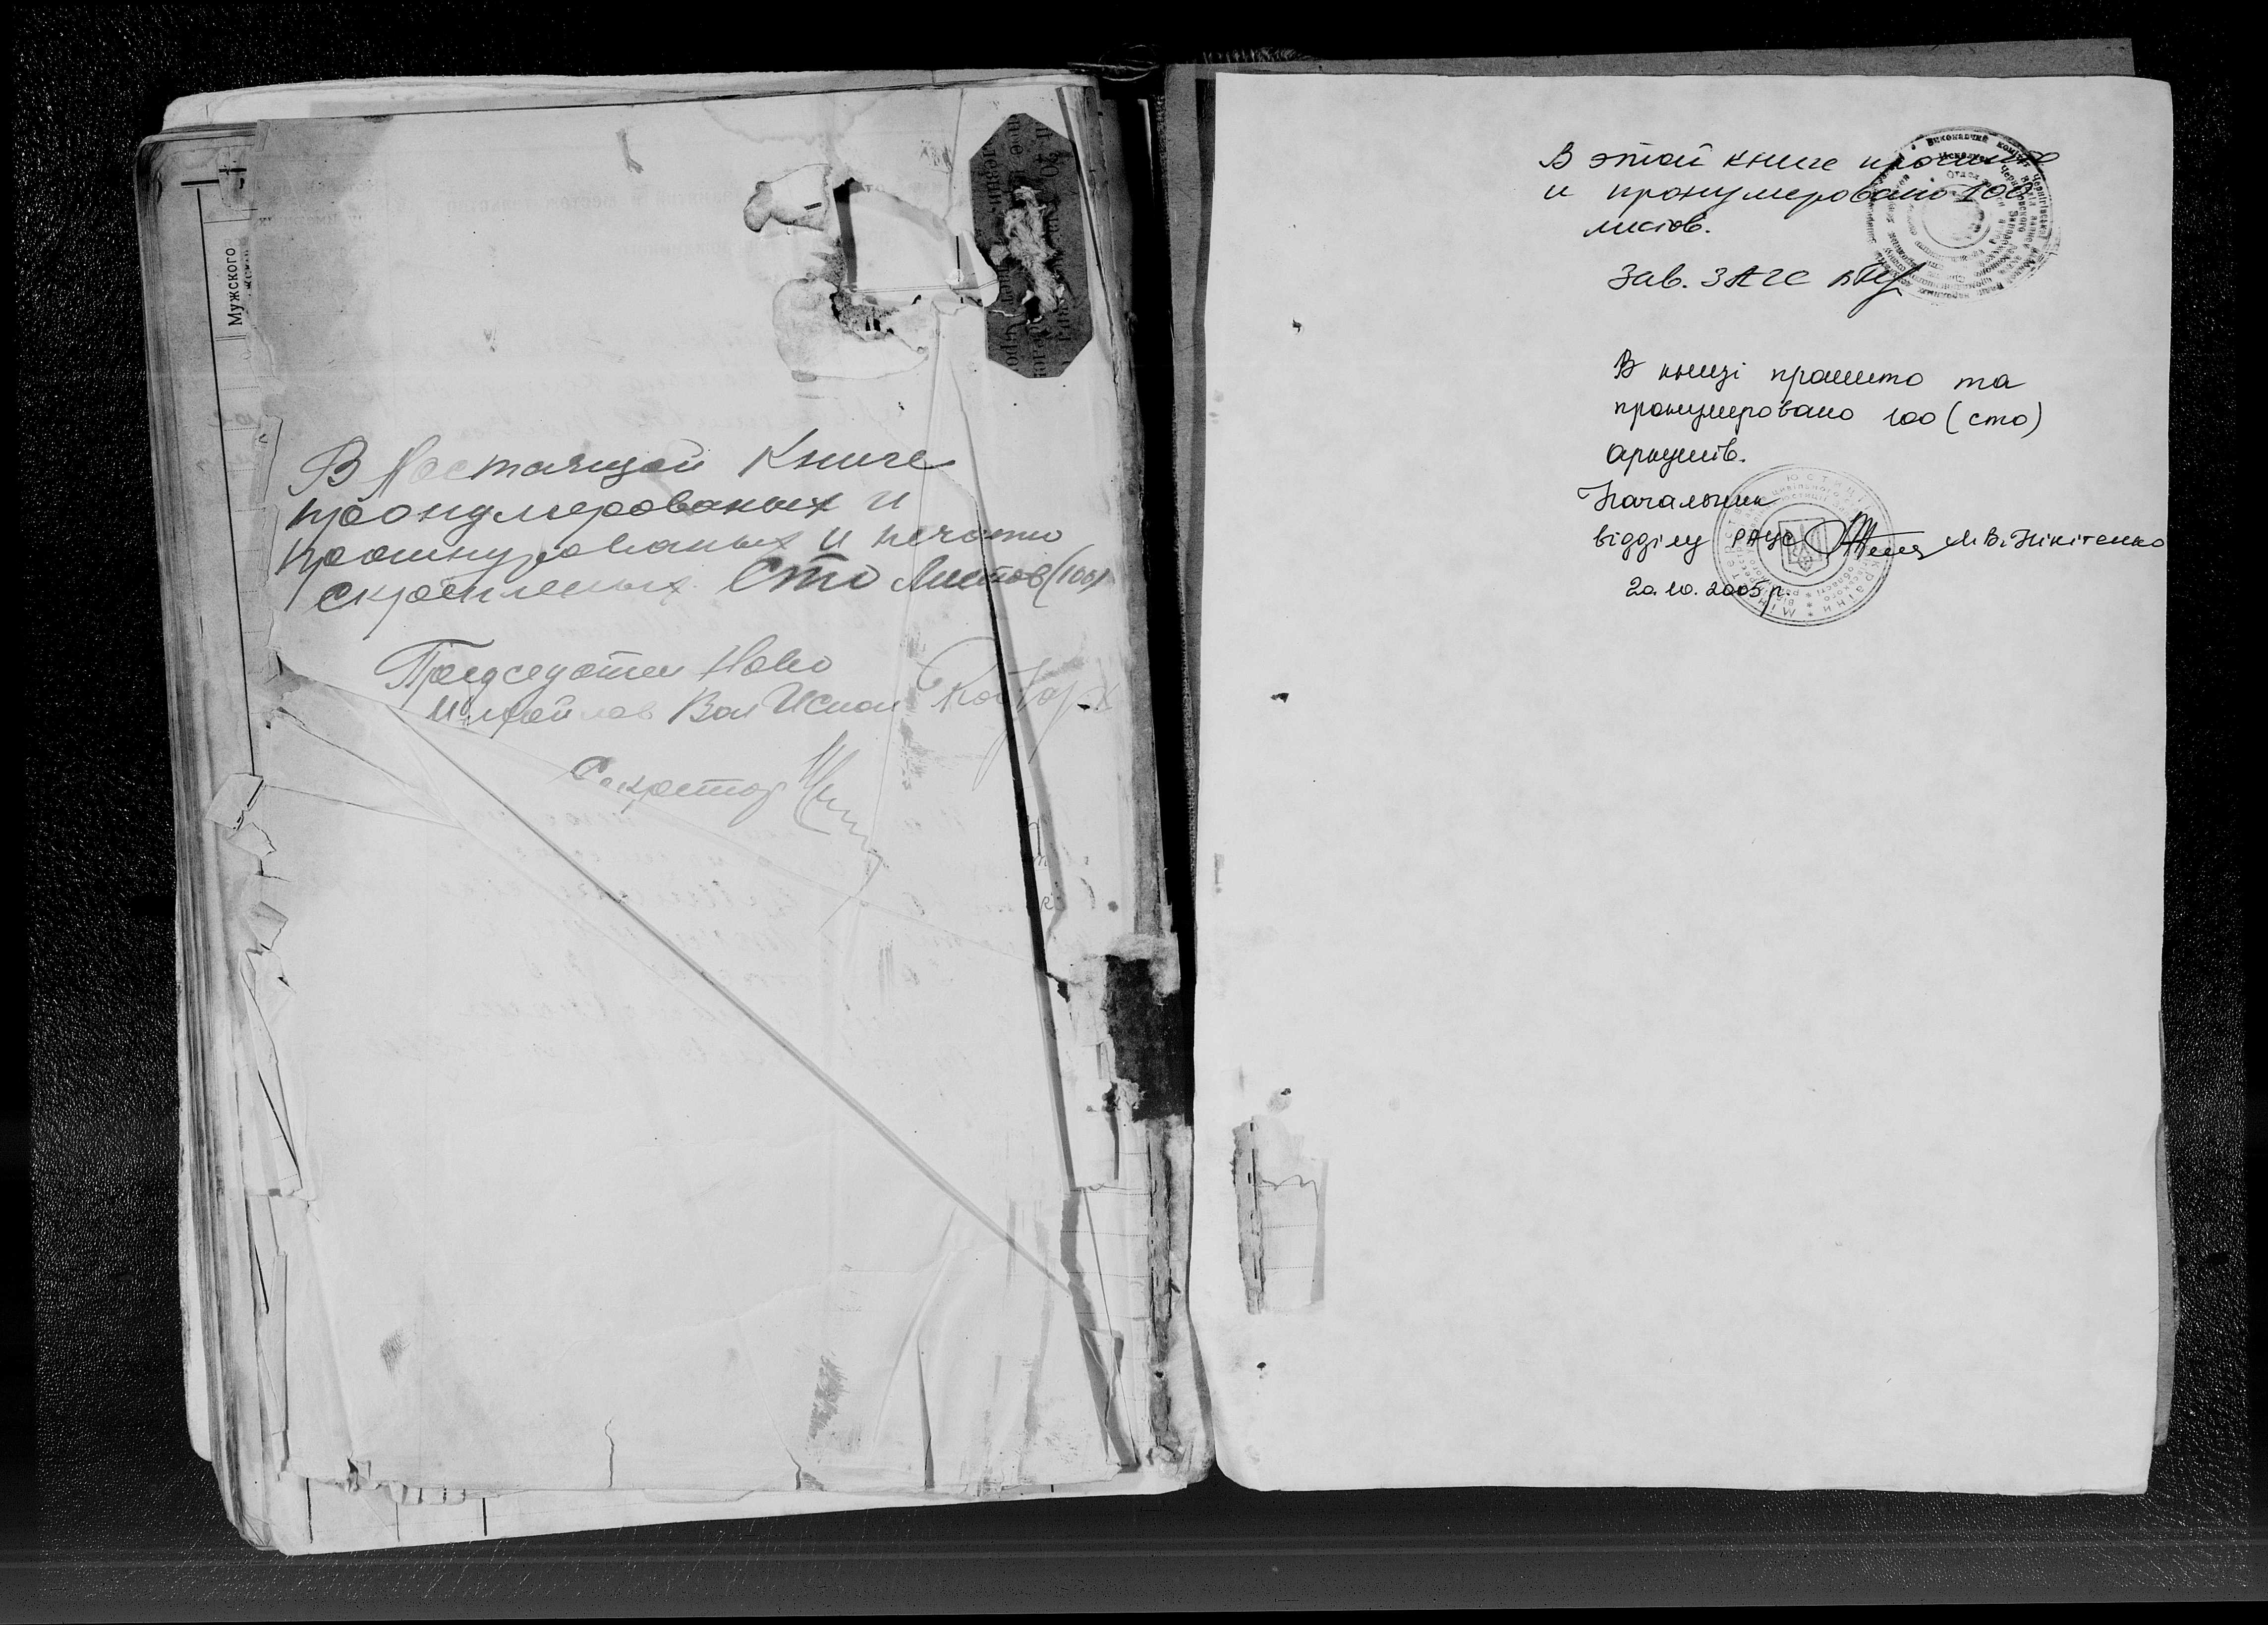 Мужского
В Настоящой Книге
пронумерованых и
прошнурованых и печатю
скрепленых Сто Листов (100)
Председатель Ново
Вол Испол
Секретарь
В этой книге прошито
и пронумеровано 100
листов.
Зав. ЗАГС
В книзі прошито та
пронумеровано 100 (сто)
аркушів.
Начальник
відділу РАЦС М.В. Нікітенко
20.10.2005р.